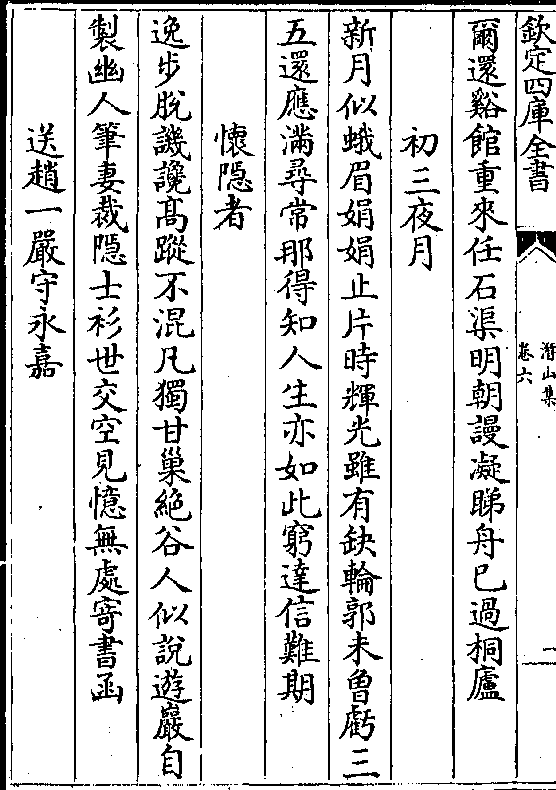 欽定四庫全書
潛山集
卷六
一
爾還谿館重來任石渠明朝謾凝睇舟已過桐廬
初三夜月
新月似蛾眉娟娟止片時輝光雖有缺輪郭未曾虧三
五還應滿尋常那得知人生亦如此窮達信難期
懷隠者
逸步脫譏讒髙蹤不混凡獨甘巢絶谷人似說遊巖自
製幽人筆妻裁隠士衫世交空見憶無處寄書函
送趙一嚴守永嘉